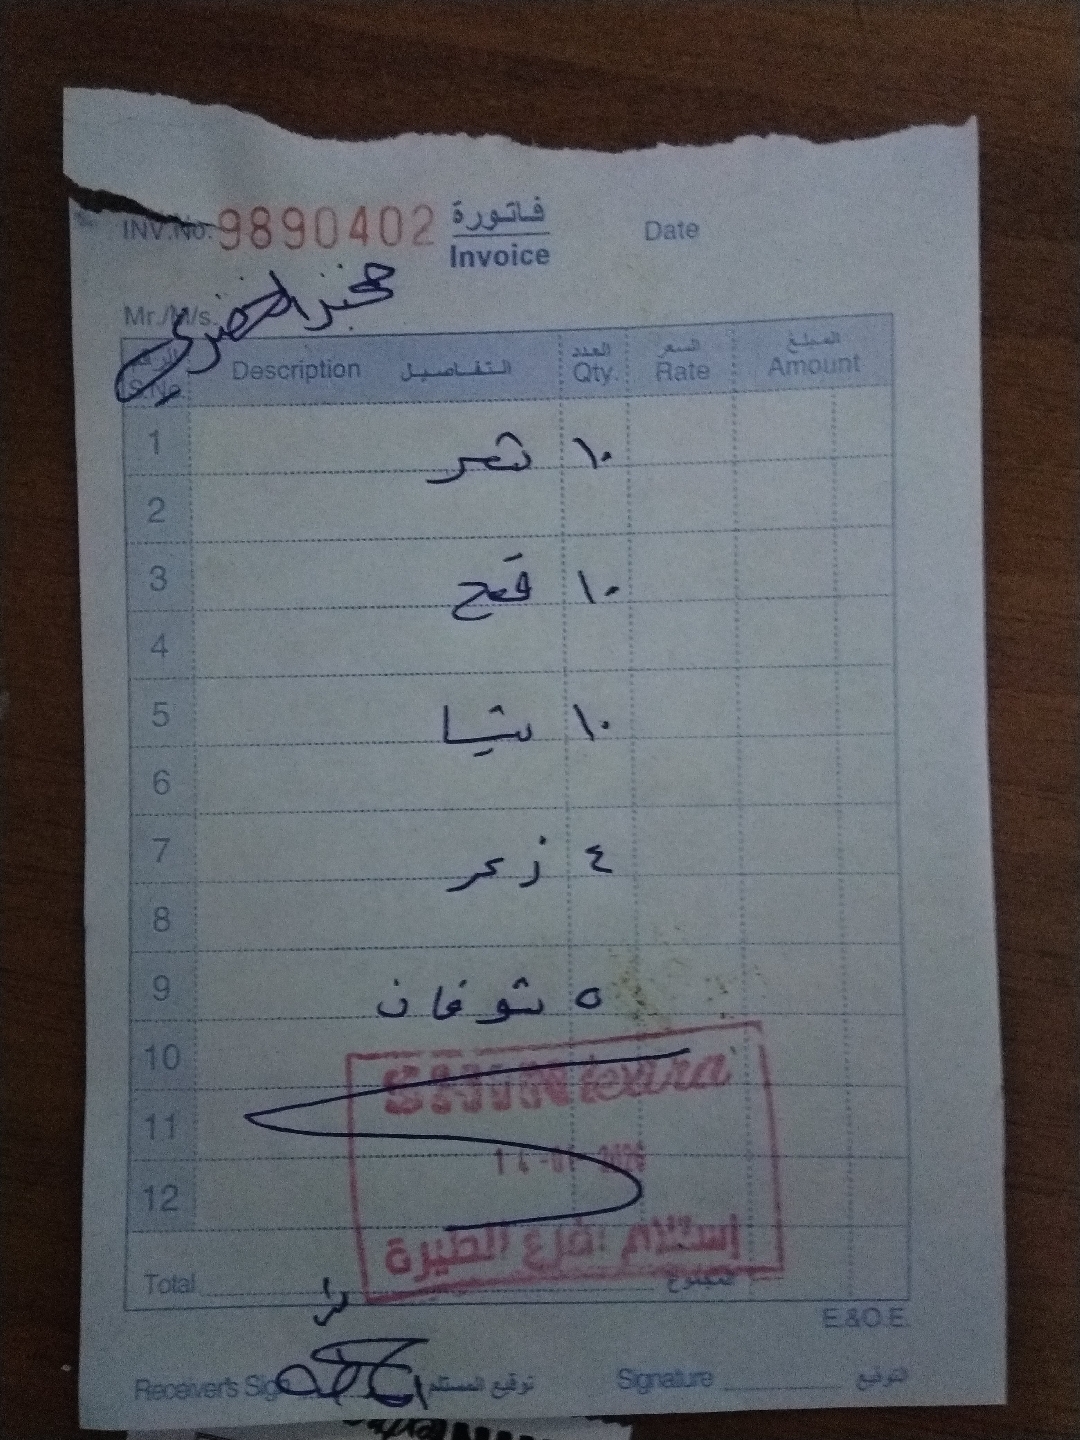 INV.No. 9890402 فاتورة Date
Invoice
Mr./M/s. مخبز الخضري
الرقم التفاصيل العدد السعر المبلغ
S.No. Description Qty. Rate Amount
1 ١٠ شعر
2
3 ١٠ قمح
4
5 ١٠ شيا
6
7 ٤ زعر
8
9 ٥ شوفان
10
11
12
استلام فرع الطيرة
Total المجموع
E.&O.E.
Receiver's Sign توقيع المستلم Signature التوقيع